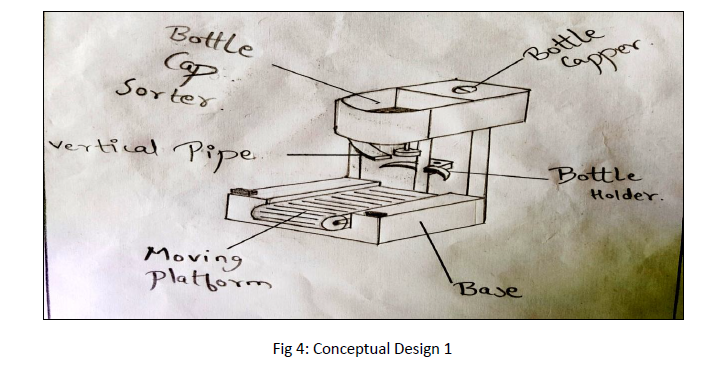 Bottle
Cap
Sorter.
Bottle
Capper.
Vertical Pipe.
Bottle
Holder.
Moving
Platform
Base
Fig 4: Conceptual Design 1